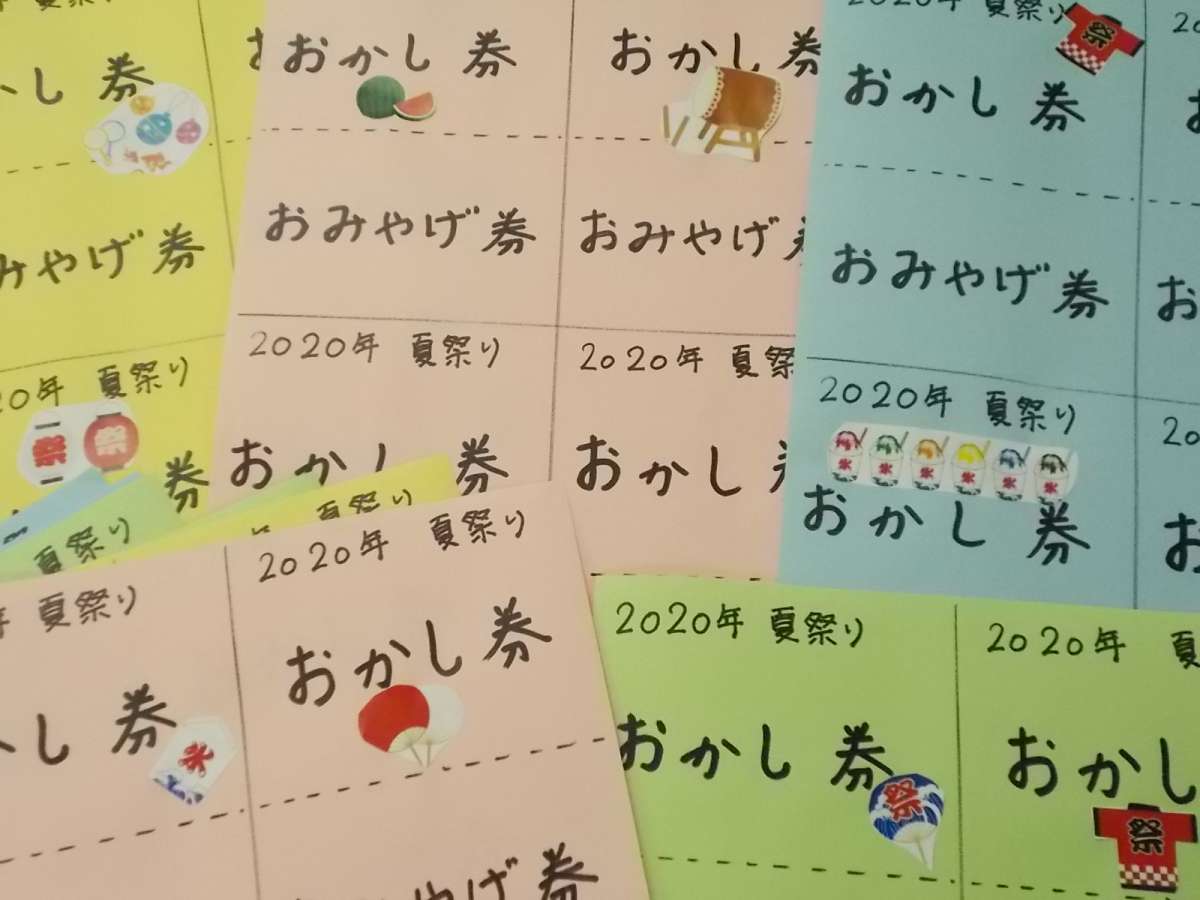 夏祭り
かし 券
みやげ券
20年 夏祭り
祭
祭
券
おかし 券
おかし 券
おみやげ券
おみやげ
2020年 夏祭り
2020年 夏祭
おかし 券
おかし
2020年 夏祭り
祭
おかし 券
おみやげ券
お
2020年 夏祭り
氷 氷 氷 氷 氷 氷
おかし 券
お
夏祭り
夏祭り
年 夏祭り
かし 券
氷
2020年 夏祭り
おかし 券
みやげ 券
2020年 夏祭り
おかし 券
祭
2020年 夏
おかし
祭